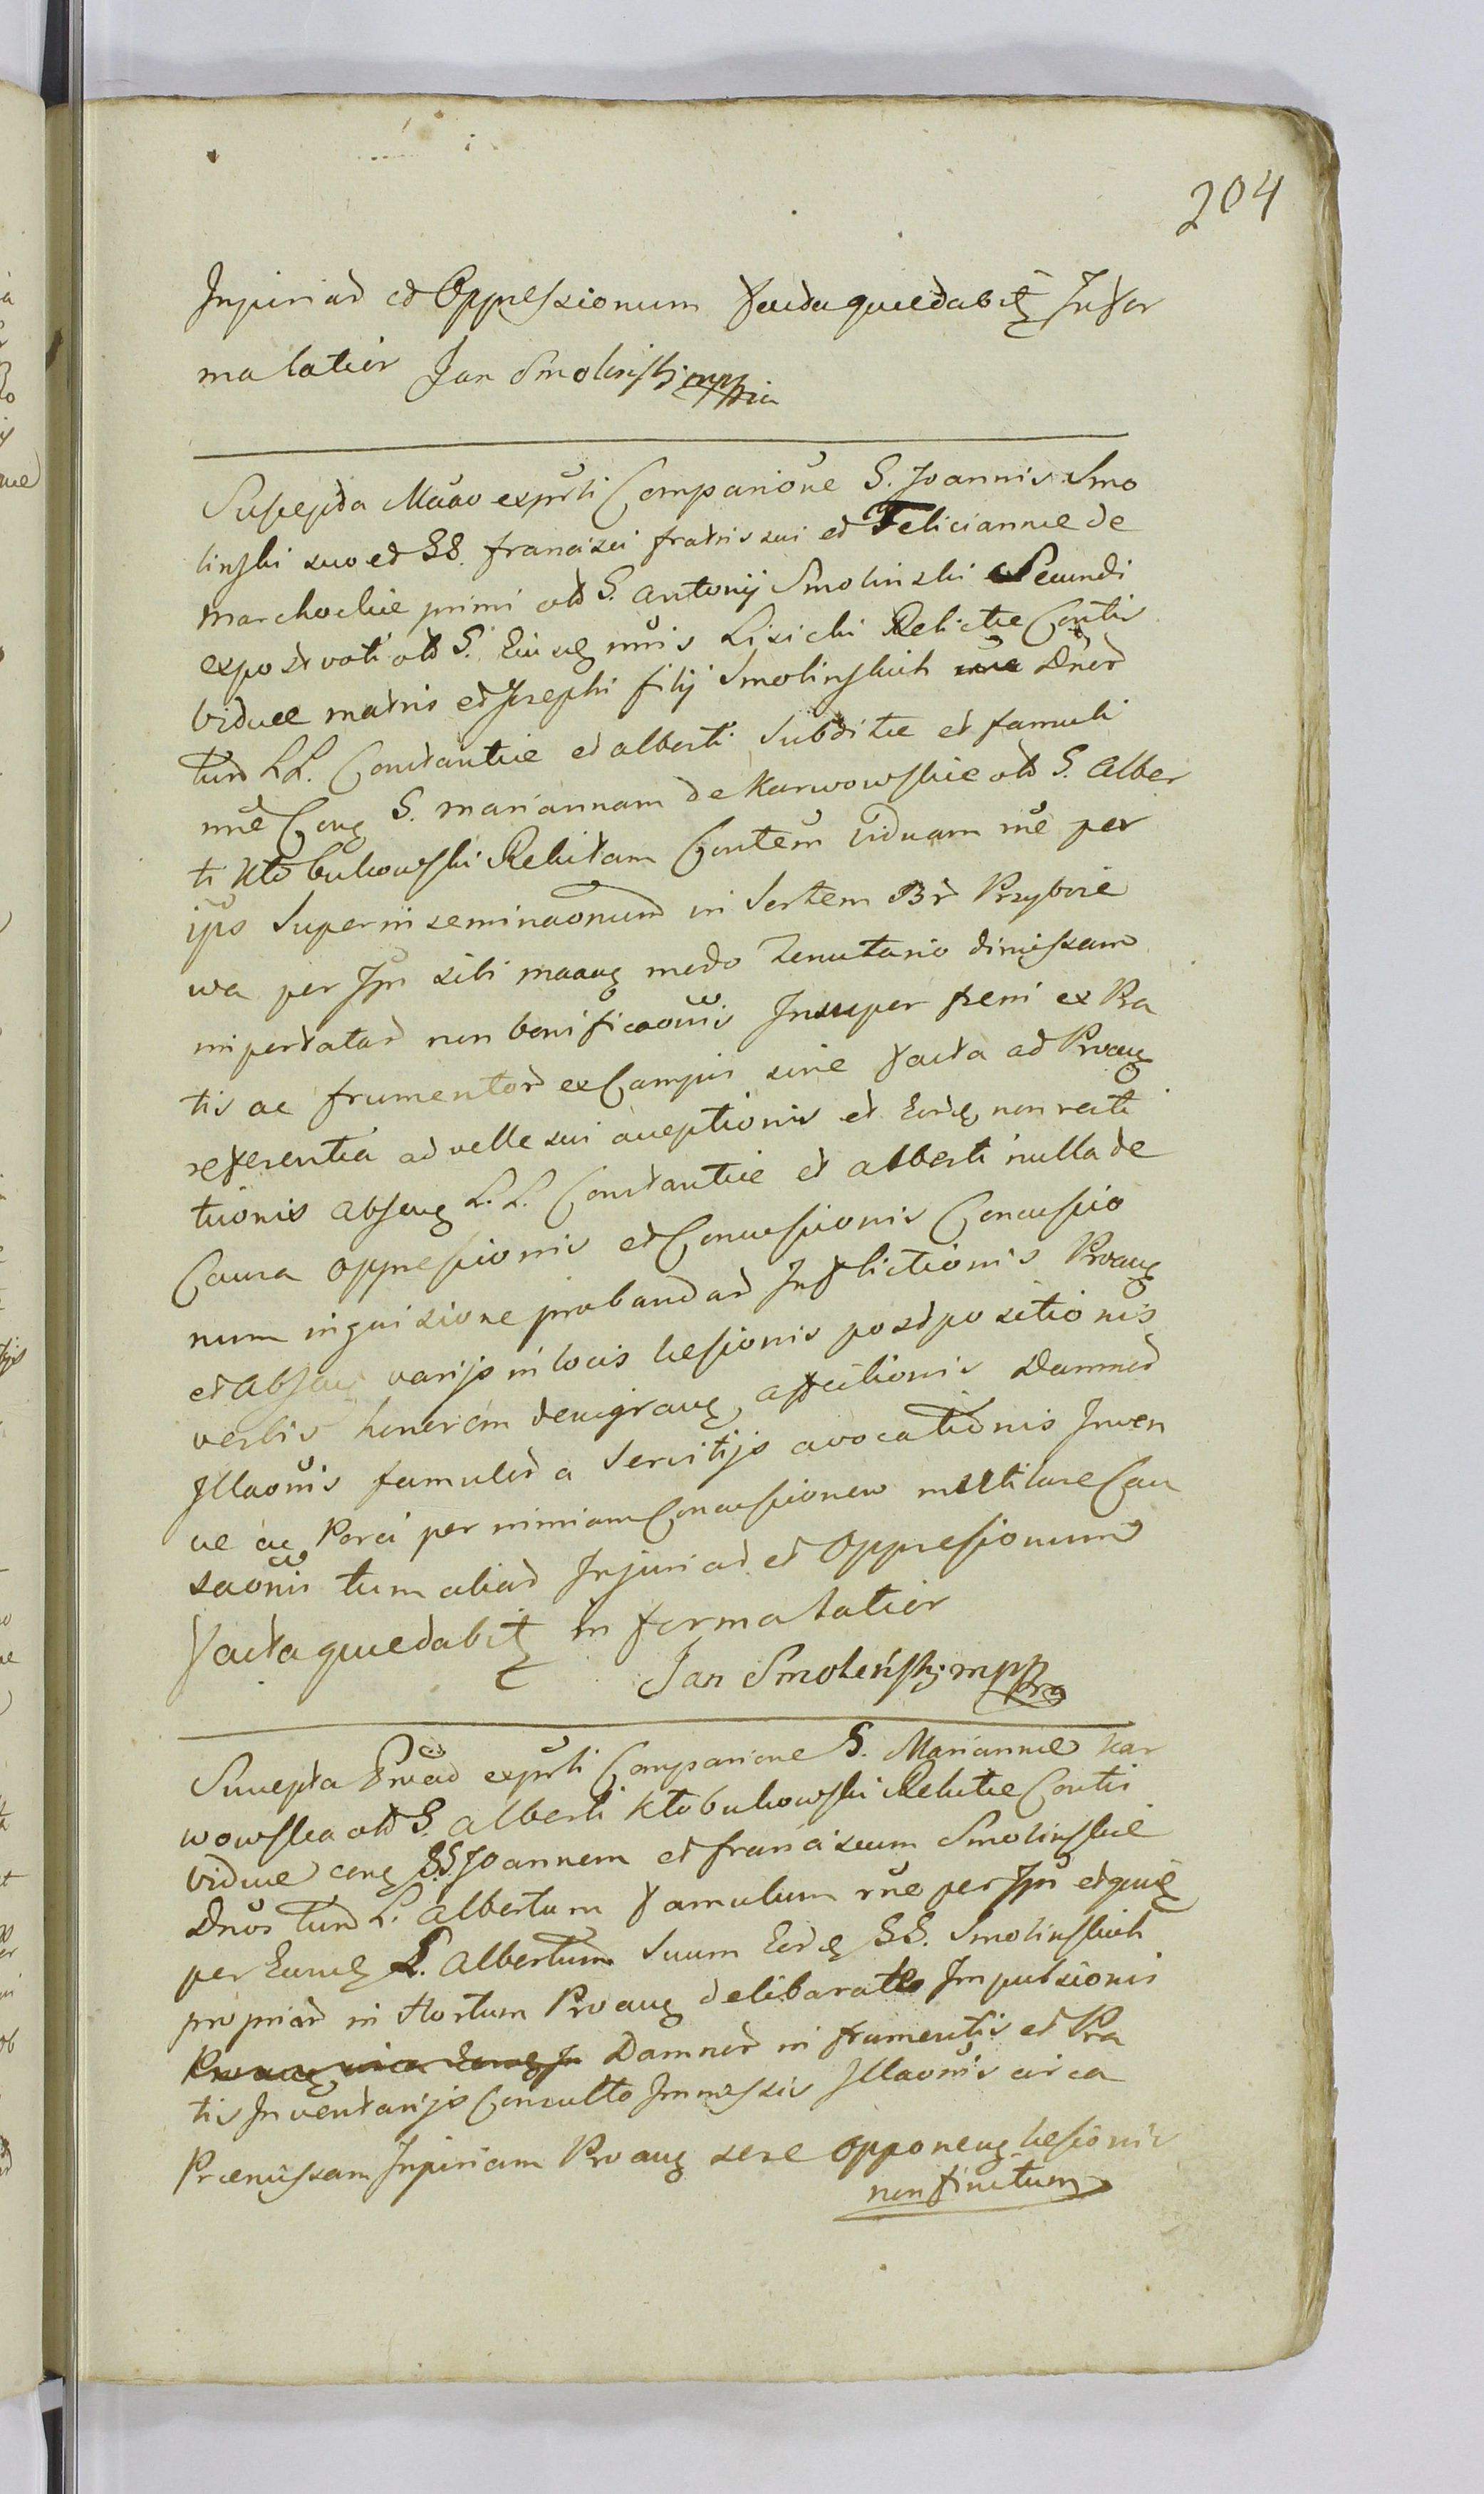 204
Injuriar et Oppressionum factaquaedabit Infor
matatior Jan Smolinski mppria
Suscepta Maao exprsti Comparione G. Joannis Smo
linski suo et GG. francisci fratris sui et Felicianae de
marchockie primi olt G. antonij Smolinski Secundi
expost voti olt G. Eiusq mris Lisicki Relictae Contis
viduae matris et Josephi filij Smolinskich Dnor
tum LL. Constantiae et alberti Subditae et famuli
nne Cong G. mariannam de Karwowskie olt G. Alber
ti Kłobukowski Relictam Contem viduam rne per
ips Superinseminaonum in Sortem Br Przybore
wa per Ipn sibi maaug modo Tenutario dimissam
impertatar non bonificaonis Insuper feni ex Pra
tis ac frumentor ex Campis sine facta ad Proaug
referentia ad velle sui acceptionis et Eorq non resti
tuionis absenq L. L. Constantiae et alberti nulla de
Causa oppressionis et Concussionis Concussio
num inquisione probandar Inflictionis Proaug
et absenq varijs in locis laesionis postpositionis
verbis honorem denigranq affectionis Damnor
Illaonis famulor a Servitijs avocationis Juven
cae ac Porci per nimiam Concussionem mutilae Cau
saonis tum aliar Injuriar et Oppressionum
factaquaedabit in formatatior
Jan Smoleński mppria
Suscepta Praed exprsti Comparione G. Mariannae Kar
wowska olt G. alberti Kłobukowski Relictae Contis
viduae conq GG Joannem et franciscum Smolinskie
Dnos tum L. albertum famulum rne per Ipn etquae
per Eumq L. albertum Suum Eorq GG. Smolinskich
propriar in Hortum Proaug deliberate Impulsionis
Damnor in frumentis et Pra
tis Inventarijs Consulto Immissis Illaonis circa
Praemissam Injuriam Proaug sese opponenq laesionis
non finitum